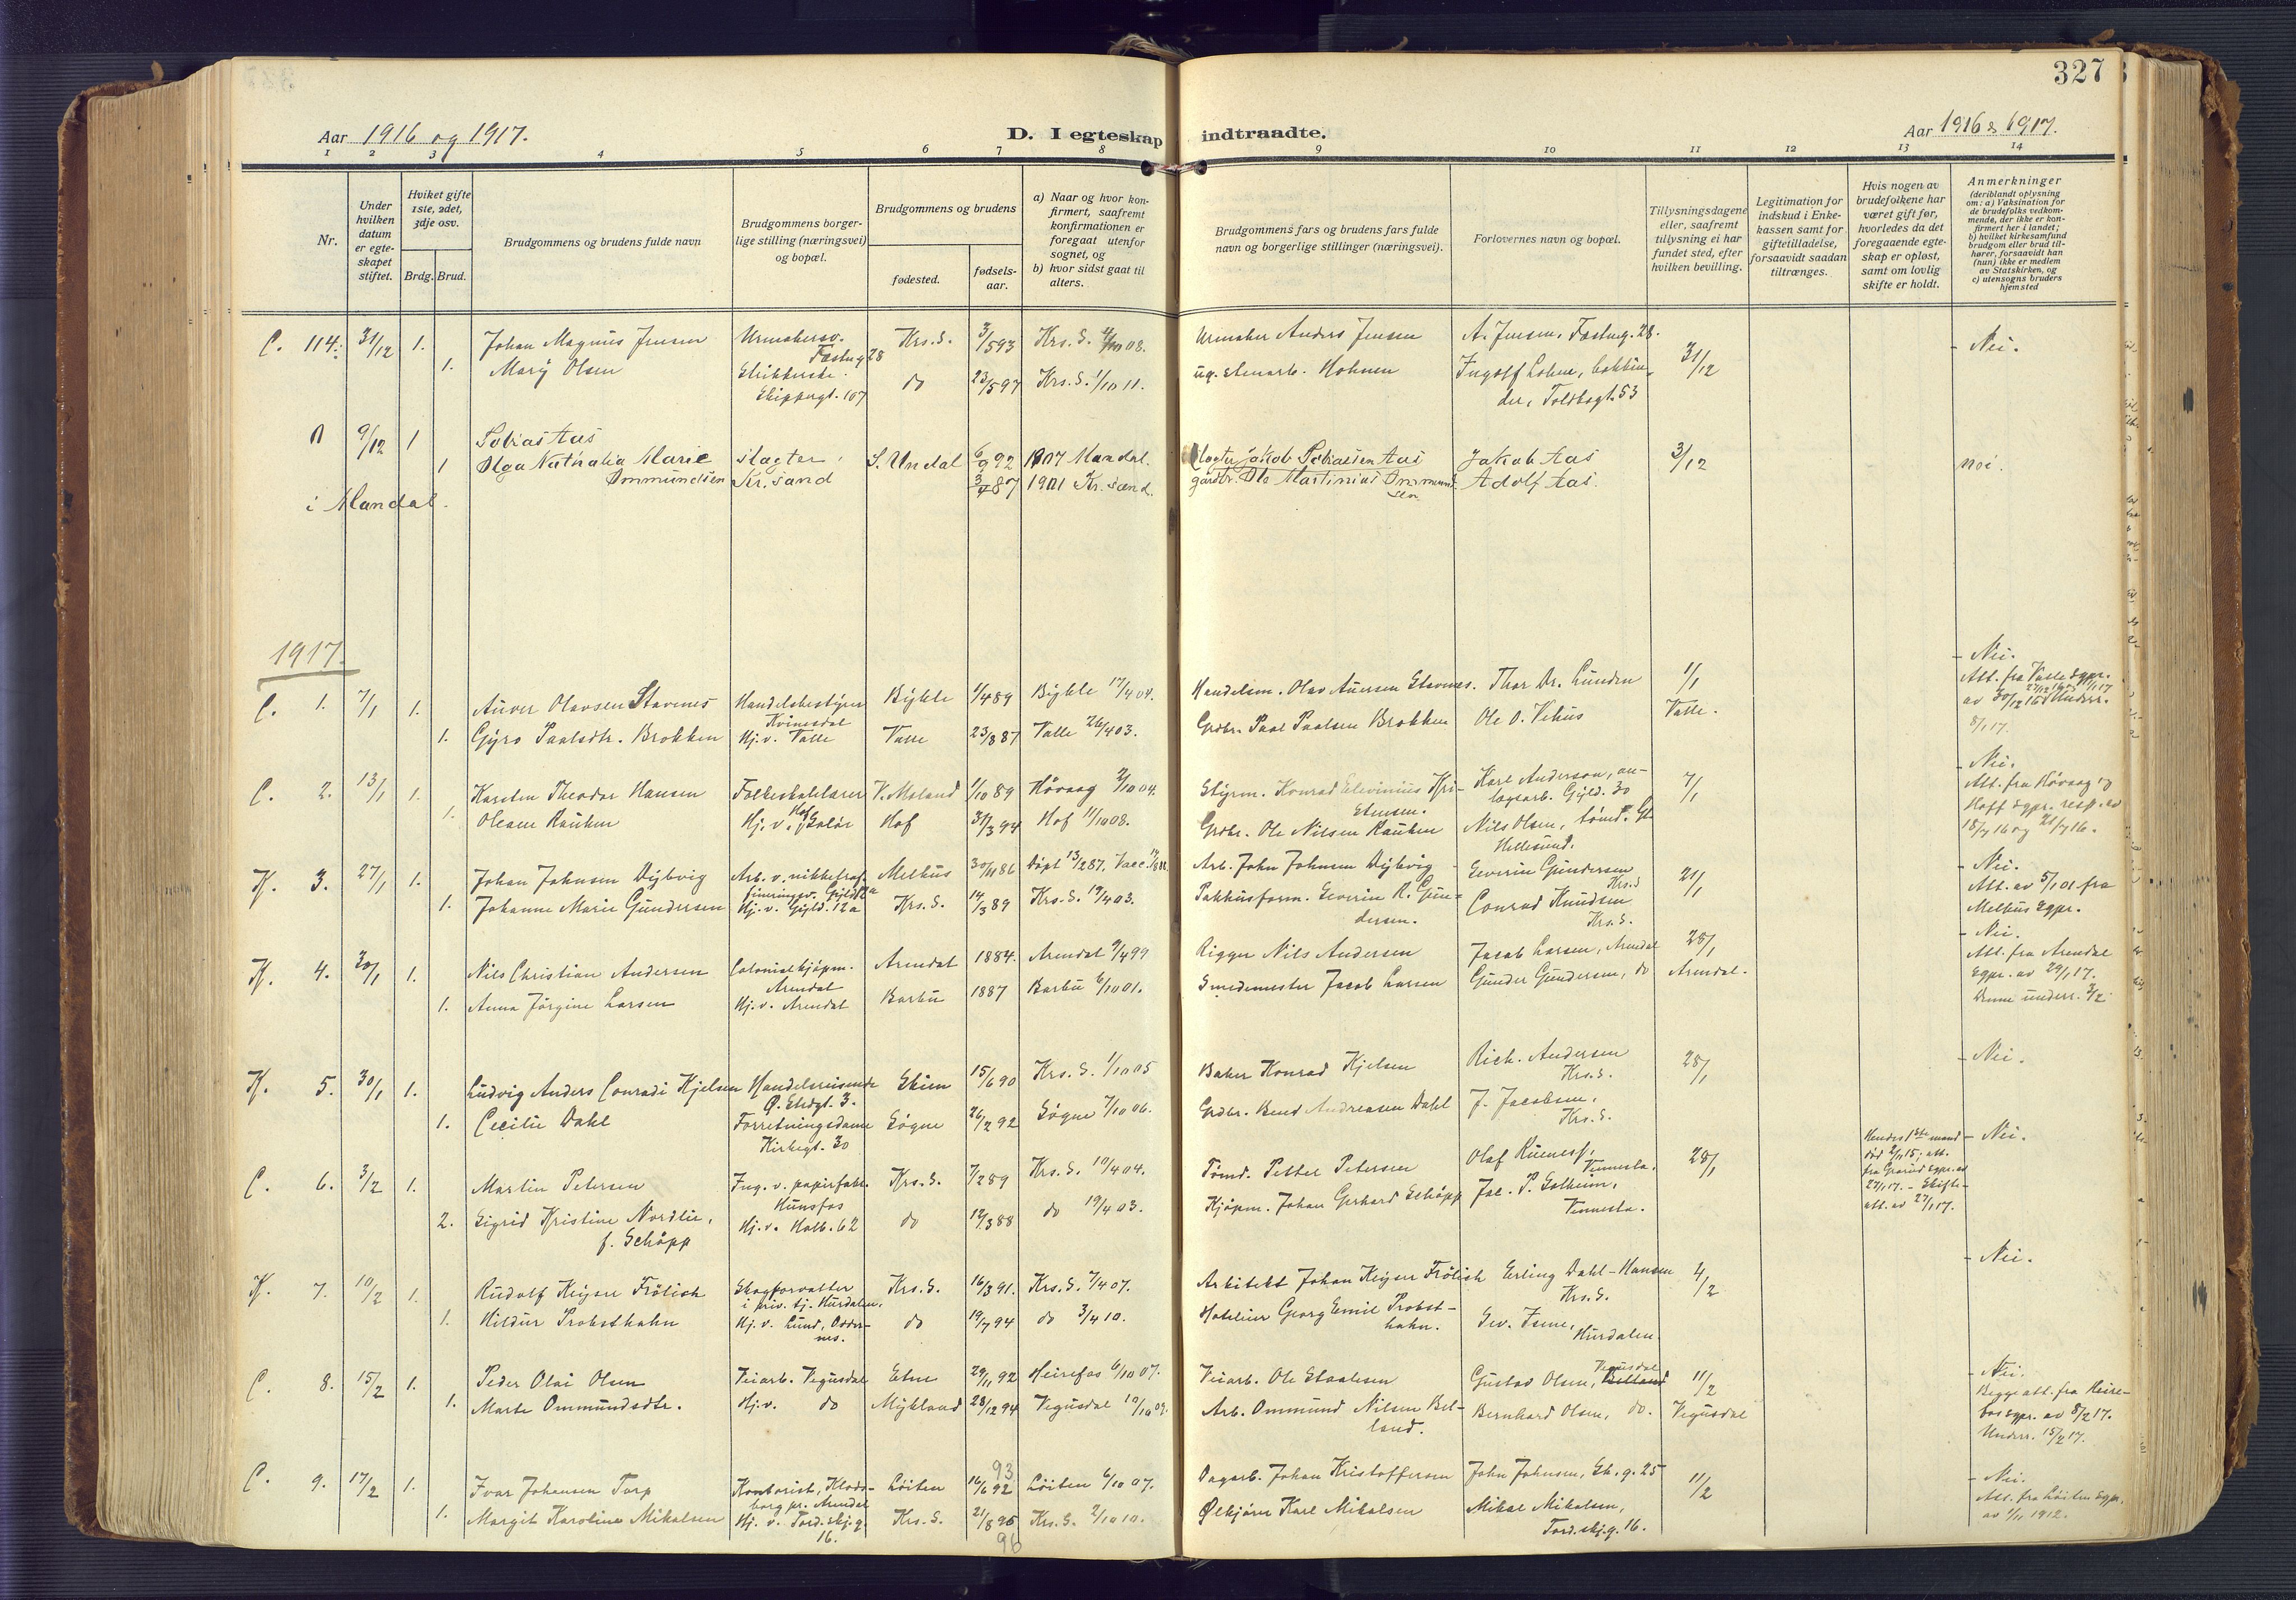 327
Aar 1916 og 1917.
D. I egteskap indtraadte.
Aar 1916 & 1917.
1 2 3 4 5 6 7 8 9 10 11 12 13 14
Nr.
Under hvilken datum er egteskapet stiftet.
Hvilket gifte 1ste, 2det, 3dje osv.
Brdg. Brud.
Brudgommens og brudens fulde navn
Brudgommens borgerlige stilling (næringsvei) og bopæl.
Brudgommens og brudens
fødested.
fødselsaar.
a) Naar og hvor konfirmert, saafremt konfirmationen er foregaat utenfor sognet, og
b) hvor sidst gaat til alters.
Brudgommens fars og brudens fars fulde navn og borgerlige stillinger (næringsvei).
Forlovernes navn og bopæl.
Tillysningsdagene eller, saafremt tillysning ei har fundet sted, efter hvilken bevilling.
Legitimation for indskud i Enkekassen samt for giftetilladelse, forsaavidt saadan tiltrænges.
Hvis nogen av brudefolkene har været gift før, hvorledes da det foregaaende egteskap er opløst, samt om lovlig skifte er holdt.
Anmerkninger
(deriblandt oplysning om: a) Vaksination for de brudefolks vedkommende, der ikke er konfirmert her i landet; b) hvilket kirkesamfund brudgom eller brud tilhører, forsaavidt han (hun) ikke er medlem av Statskirken, og c) utensogns bruders hjemsted
C. 114. 31/12 1. Johan Magnus Jensen Urmakersv. Fæstng. 28 Krs.S. 3/5 93 Krs.S. 08. Urmaker Anders Jensen A. Jensen, Fæstng. 28. 31/12 - Nei.
1. Mary Olsen Skippergt. 107 do 23/5 97 Krs.S. 1/10 11. ug. stenarb. Ingolf Lohne, bokbinder, Toldbogt. 53
9/12 1 Tobias Aas slagter, Kr.sand S. Undal 6/9 92 1907 Mandal. Slagter Jakob Tobiassen Aas Jakob Aas 3/12 nei.
1 Olga Nathalia Marie Ommundsen 87 1901 Kr.sand. gårdbr. Ole Martinius Ommundsen Adolf Aas.
i Mandal.
1917.
C. 1. 7/1 1. Auver Olavsen Stavenes Handelsbestyrer Kvinesdal Bykle 1/4 89 Bykle 17/4 04. Handelsm. Olav Auversen Stavenes. Thor Dr. Lunden 1/1 Valle. - Nei. Att. fra Valle Sgpr. av 30/12 16. Underr. 8/1 17.
1. Gyro Paalsdtr. Brokken Hj.v. Valle Valle 23/8 87 Valle 26/4 03. Grdbr. Paal Paalsen Brokken Ole O. Vehus
C. 2. 13/1 1. Karsten Theodor Hansen Folkeskolelærer V. Moland 1/10 89 Høvaag 2/10 04. Styrm. Konrad Elevinius Kristensen. Karl Anderson, anlægsarb. Gyld. 30 7/1 - Nei. Att. fra Høvaag og Hoff Sgpr. resp. av 18/7 16 og 21/7 16.
1. Oleane Rauken Hj.v. Hof, Solør Hof 31/3 94 Hof 11/10 08. Grdbr. Ole Nilsen Rauken Nils Olsen, tømd. Gl. Hellesund.
K. 3. 27/1 1. Johan Johnsen Dybvig Arb. v. nikkelraffineringsv. Gyld. 12a Melhus 30/11 86 Døpt 13/2 87, Vacc. Arb. John Johnsen Dybvig Severin Gundersen Krs.S 21/1 - Nei. Att. av 5/1 01 fra Melhus Sgpr.
1. Johanne Marie Gundersen Hj.v. Gyld. 12a Krs.S. 14/3 89 Krs.S. 19/4 03. Pakhusform. Severin R. Gundersen. Conrad Knudsen Krs.S.
K. 4. 30/1 1. Nils Christian Andersen Colonialkjøpm. Arendal Arendal 1884. Arendal 9/4 99 Rigger Nils Andersen Jacob Larsen, Arendal 28/1 Arendal. - Nei. Att. fra Arendal Sgpr. av 29/1 17. Denne underr. 3/2
1. Anna Jørgine Larsen Hj.v. Arendal Barbu 1887 Barbu 6/10 01. Smedemester Jacob Larsen Gunder Gundersen, do
K. 5. 30/1 1. Ludvig Anders Conradi Kjelsen Handelsreisende Ø. Strdgt. 3. Skien 15/6 90 Krs.S. 1/10 05 Baker Konrad Kjelsen Rich. Andersen Krs.S. 28/1 - Nei.
1. Cecilie Dahl Forretningsdame Kirkegt. 30 Søgne 26/2 92 Søgne 7/10 06. Grdbr. Bend Andreasen Dahl J. Jacobsen, Krs.S.
C. 6. 3/2 1. Martin Petersen Ing. v. papirfabr. Hunsfos Krs.S. 7/2 89 Krs.S. 10/4 04. Tømd. Petter Petersen Olaf Ruenes, Vennesla. 28/1 Hendes 1ste mand død 2/11 15; att. fra Sgpr. av 27/1 17. - Skifteatt. av 27/1 17. - Nei.
2. Sigrid Kristine Nordlie, f. Schøpp Hj.v. Holb. 62 do 12/3 88 do 19/4 03. Kjøpm. Johan Gerhard Schøpp Jac. P. Solheim, Vennesla.
K. 7. 10/2 1. Rudolf Keyser Frölich Skogforvalter i priv. tj. Hurdalen. Krs.S. 16/3 91. Krs.S. 7/4 07. Arkitekt Johan Keyser Frölich Erling Dahl-Hansen Krs.S. 4/2 - Nei.
1. Hildur Probsthahn Hj.v. Lund, Oddernes. do 19/7 94 do 3/4 10. Hoteleier Georg Emil Probsthahn. Hurdalen.
C. 8. 15/2 1. Peder Olai Olsen Veiarb. Vegusdal Etne 29/11 92 Heirefos 6/10 07. Veiarb. Ole Staalesen Gustav Olsen, Vegusdal 11/2 Vegusdal - Nei. Begge att. fra Heirefos sgpr. av 8/2 17. Underr. 15/2 17.
1. Marte Ommundsdtr. Hj.v. do Mykland 28/12 94 Vegusdal 10/10 09. Arb. Ommund Nilsen Belland. Bernhard Olsen, do.
C. 9. 17/2 1. Ivar Johansen Torp Kontorist, Klodsborg pr. Arendal Løiten 16/6 92 93 Løiten 6/10 07. Dagarb. Johan Kristoffersen John Johnsen, St. g. 25 11/2 - Nei. Att. fra Løiten Sgpr. av 1/11 1912.
1. Margit Karoline Mikalsen Hj.v. Tord.skj.g. 16. Krs.S. 21/8 95 96 Krs.S. 2/10 10. Ølkjører Karl Mikalsen Mikal Mikalsen, Tord.skj.g. 16.